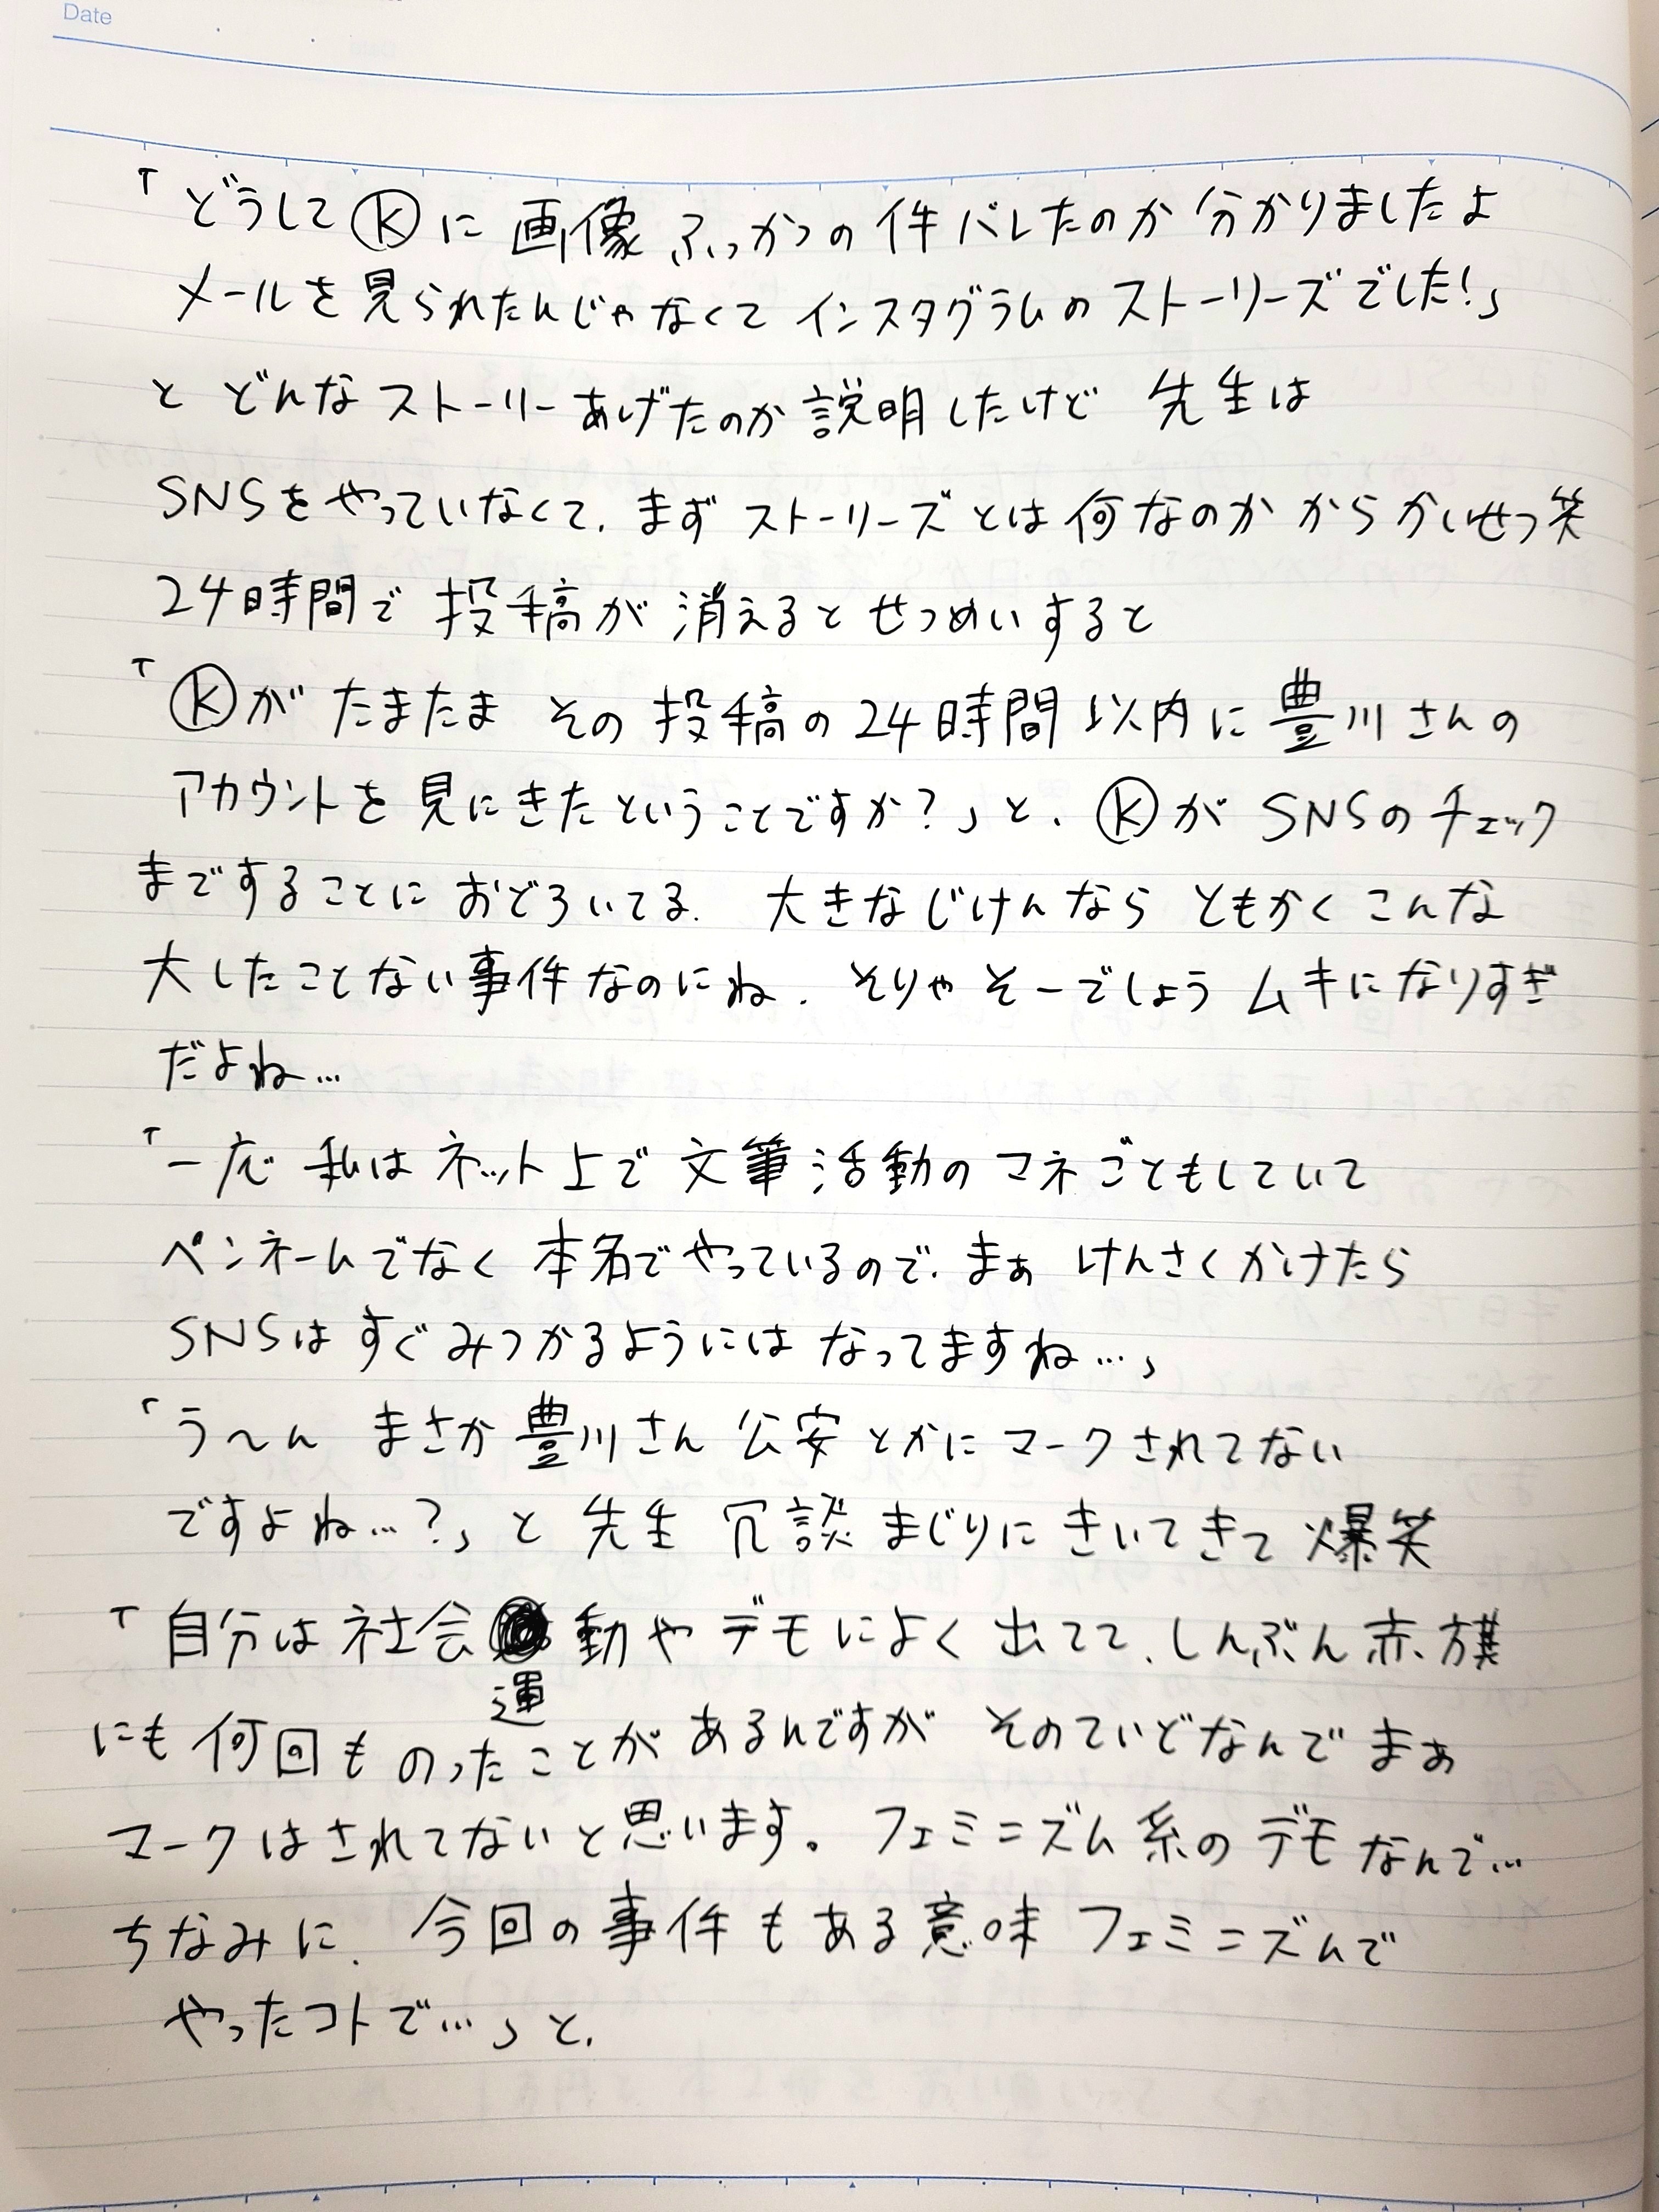 Date
「どうしてⓀに画像ふっかつの件バレたのか分かりましたよ
メールを見られたんじゃなくてインスタグラムのストーリーズでした!」
と どんなストーリーあげたのか説明したけど 先生は
SNSをやっていなくて、まずストーリーズとは何なのかからかいせつ笑
24時間で投稿が消えるとせつめいすると
「Ⓚがたまたま その投稿の24時間以内に豊川さんの
アカウントを見にきたということですか?」と、ⓀがSNSのチェック
まですることにおどろいてる、大きなじけんならともかくこんな
大したことない事件なのにね、そりゃそーでしょう ムキになりすぎ
だよね…
「一応 私はネット上で文筆活動のマネごともしていて
ペンネームでなく本名でやっているので、まぁ けんさくかけたら
SNSはすぐみつかるようにはなってますね…」
「う〜ん まさか豊川さん公安とかにマークされてない
ですよね…?」と 先生 冗談まじりにきいてきて爆笑
「自分は社会運動やデモによく出てて、しんぶん赤旗
にも何回ものったことがあるんですが そのていどなんでまぁ
マークはされてないと思います。フェミニズム系のデモなんで…
ちなみに、今回の事件もある意味フェミニズムで
やったコトで…」と、